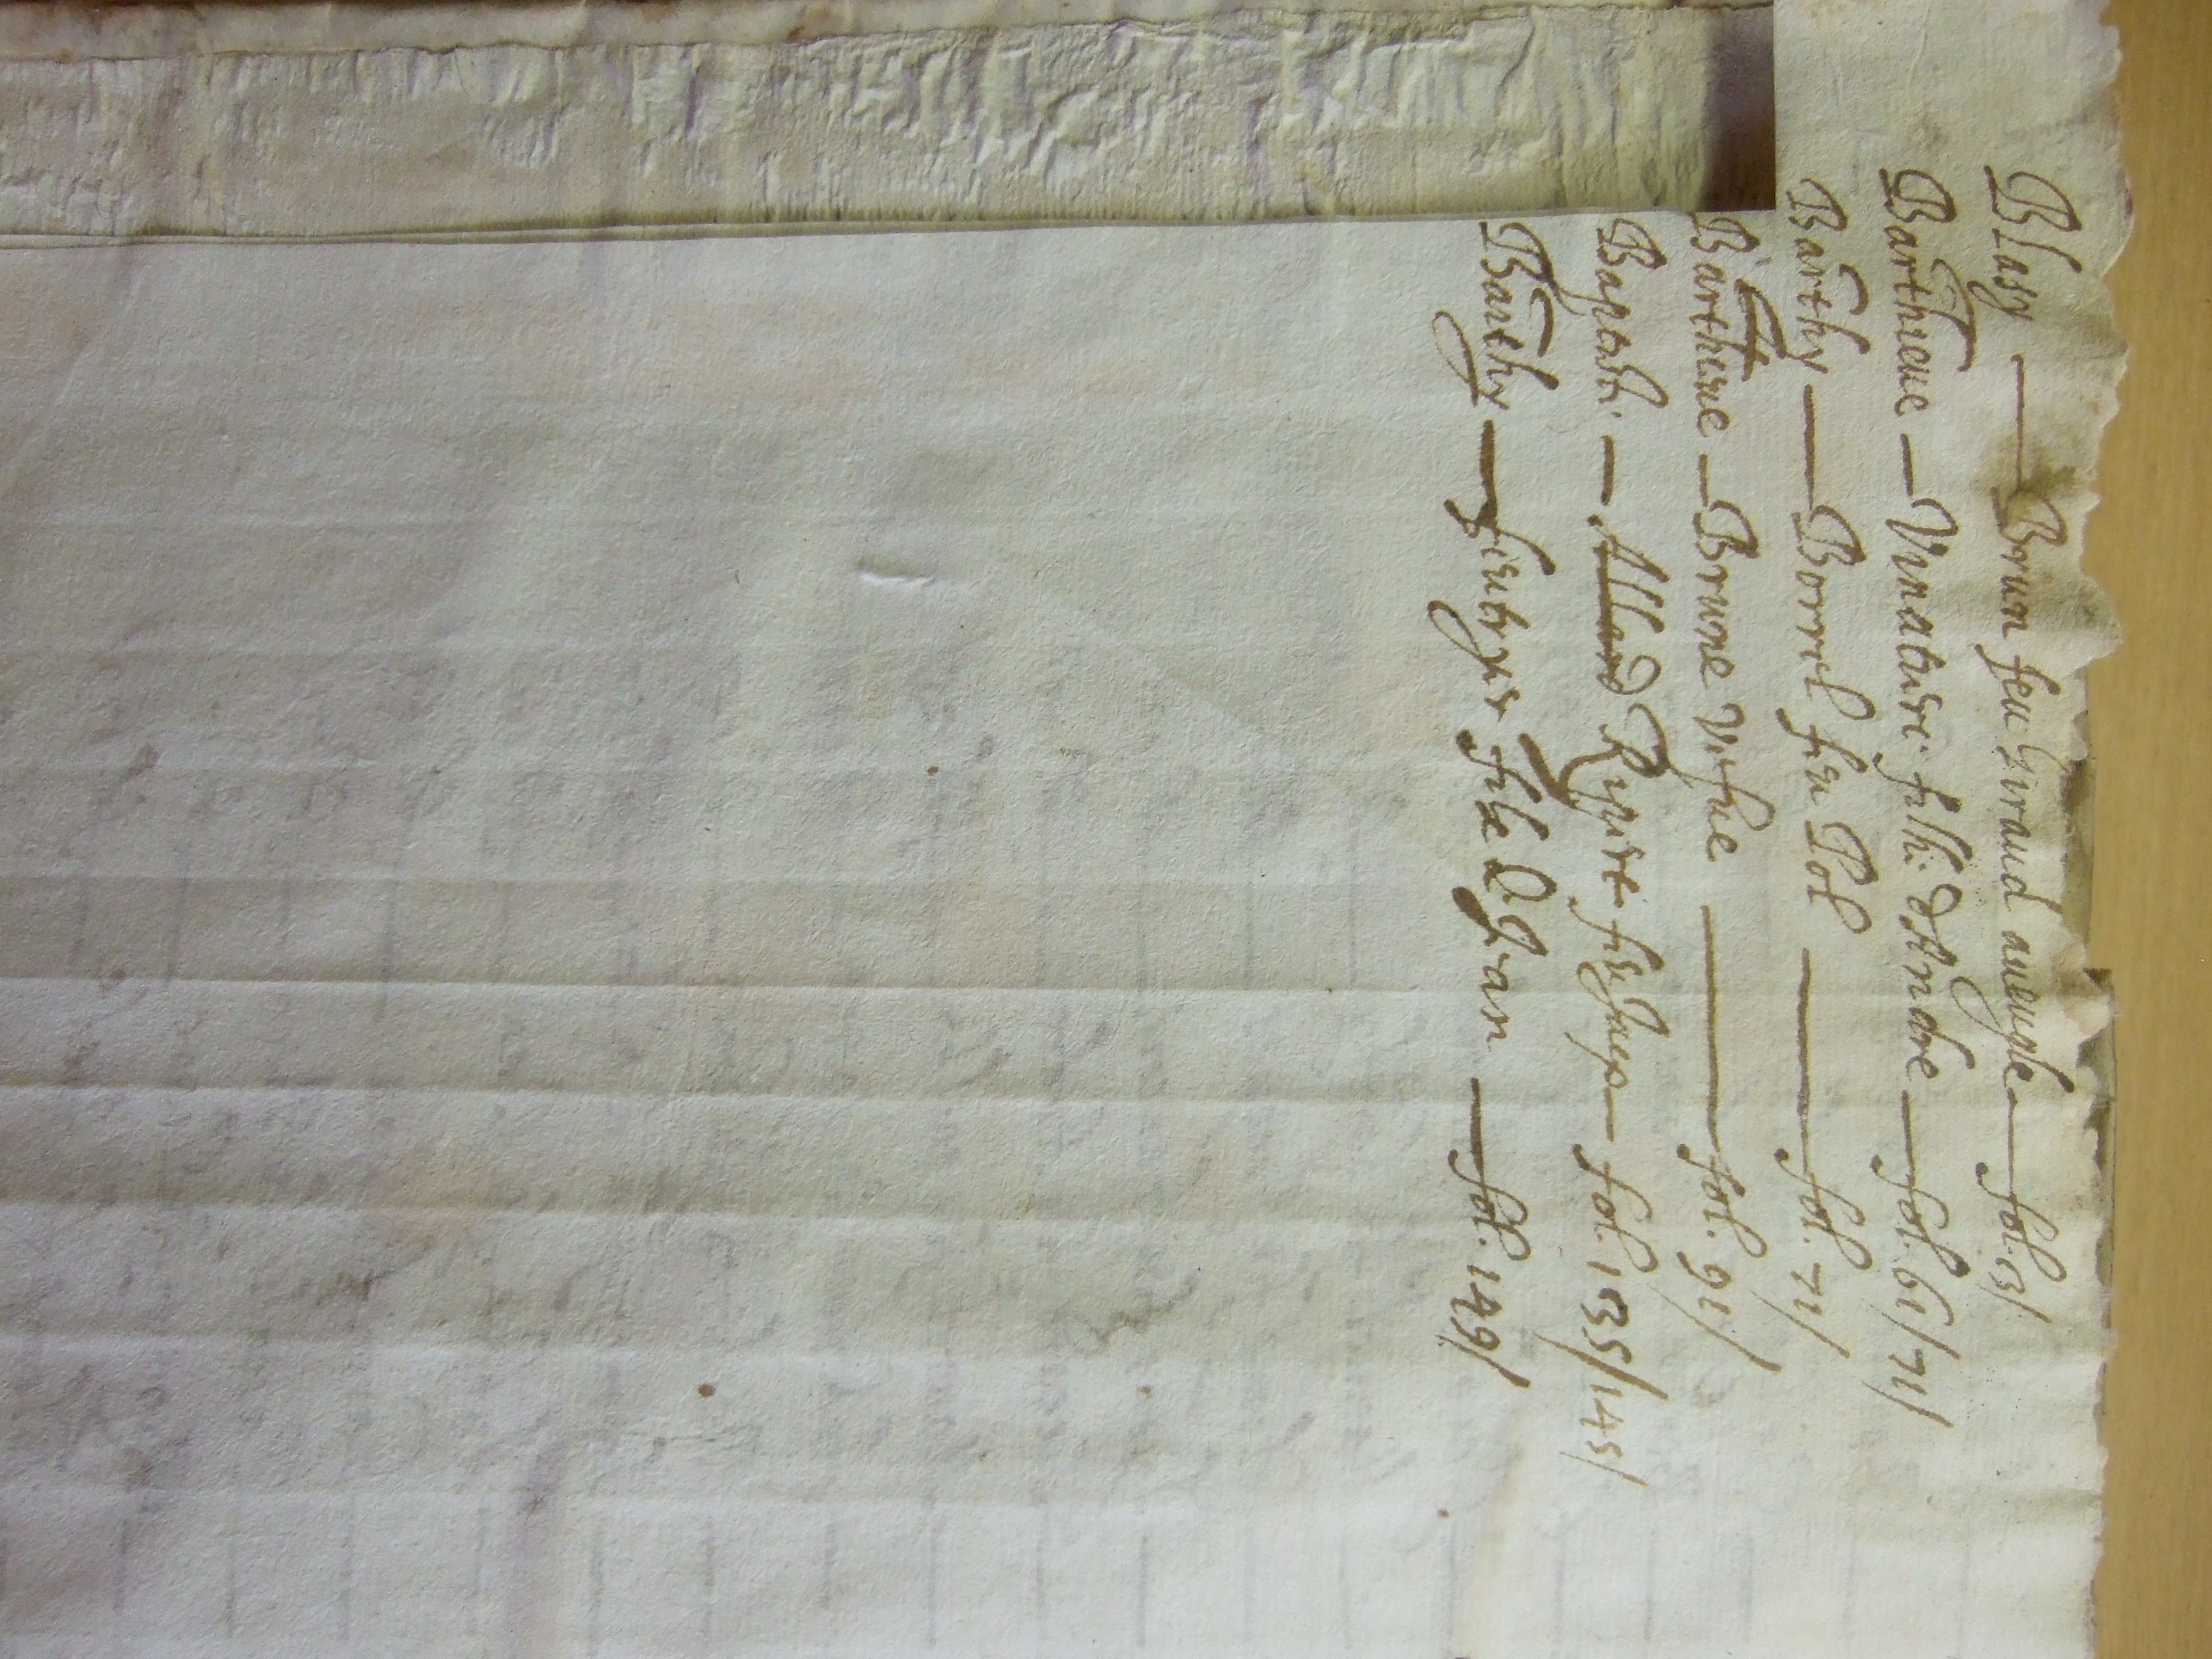 Blasy — Brun feu Giraud aueugle — fol. 3/
Bartheue — Vinatiere filhe d'Andre — fol. 61/71/
Barthy — Borrel feu Pol — fol. 71/
Bartheue — Brune Vefue — fol. 91/
Baptiste — Allard Ripert feu Jaques — fol. 135/145/
Barthy — filz D. Jan — fol. 149/